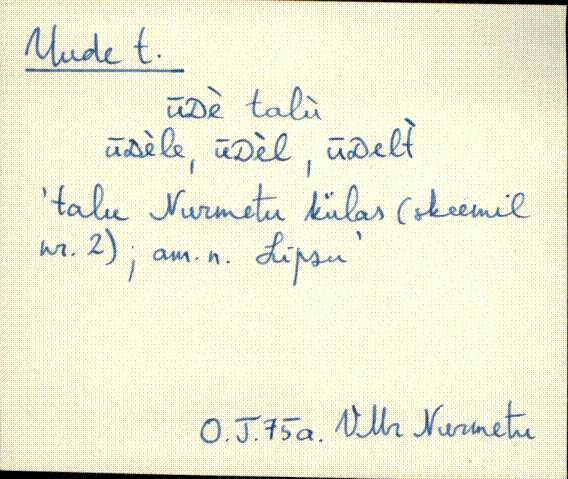 Uude t.
ūᴅè talù
ūᴅèle, ūᴅèl, ūᴅelt̀
'talu Nurmetu külas (skeemil
nr. 2); am. n. Lipsu'
O.J.75a. VMr Nurmetu